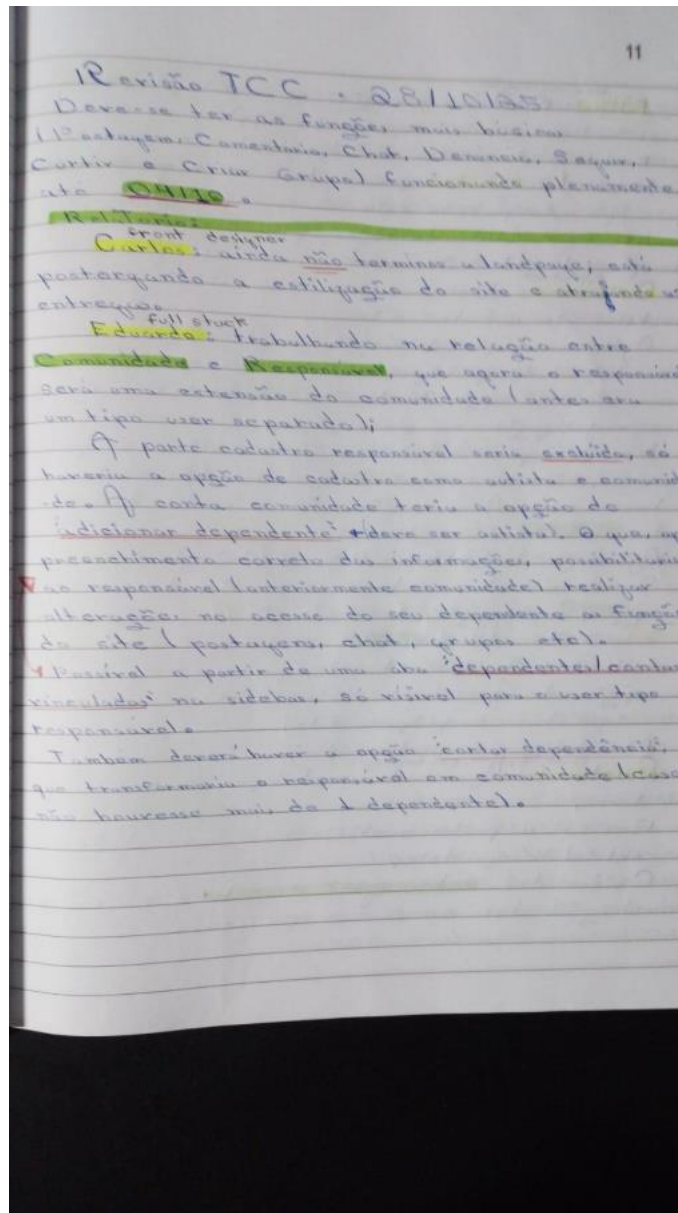 11
Revisão TCC • 28/10/25
Deve-se ter as funções mais básicas
(Postagem, Comentario, Chat, Denúncia, Seguir,
Curtir e Criar Grupo) funcionando plenamente
até 04/10.
Relatorio:
front designer
Carlos: ainda não terminou a landpage, está
postergando a estilização do site e atrasando as
entregas.
full stack
Eduardo: trabalhando na relação entre
Comunidade e Responsável, que agora o responsável
será uma extensão do comunidade (antes era
um tipo user separado);
A parte cadastro responsável seria excluída, só
haveria a opção de cadastro como autista e comunid
-de. A conta comunidade teria a opção de
"adicionar dependente" (deve ser autista). O que, ap
preenchimento correto das informações, possibilitaria
ao responsável (anteriormente comunidade) realizar
alterações no acesso do seu dependente as funçõ
do site (postagens, chat, grupos etc).
Possível a partir de uma aba "dependentes/contas
vinculadas" na sidebar, só visível para o user tipo
responsável.
Também deverá haver a opção "cortar dependência",
que transformaria o responsável em comunidade (caso
não houvesse mais de 1 dependente).